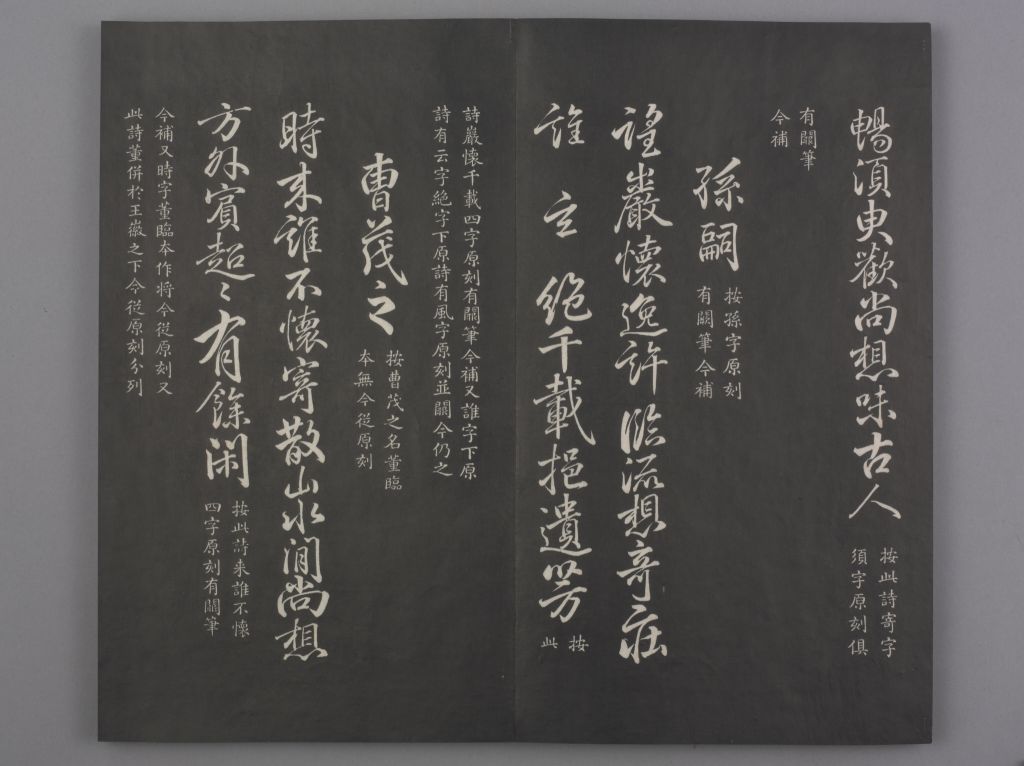 暢須臾歡尚想味古人
按此詩寄字
須字原刻俱
有闕筆
今補
孫嗣
按孫字原刻
有闕筆今補
望巖懷逸許臨流想奇莊
誰云絕千載挹遺芳
按
此
詩巖懷千載四字原刻有闕筆今補又誰字下原
詩有云字絕字下原詩有風字原刻並闕今仍之
曹茂之
按曹茂之名董臨
本無今從原刻
時來誰不懷寄散山水間尚想
方外賓超〻有餘閑
按此詩來誰不懷
四字原刻有闕筆
今補又時字董臨本作將今從原刻又
此詩董併於王徽之下今從原刻分列